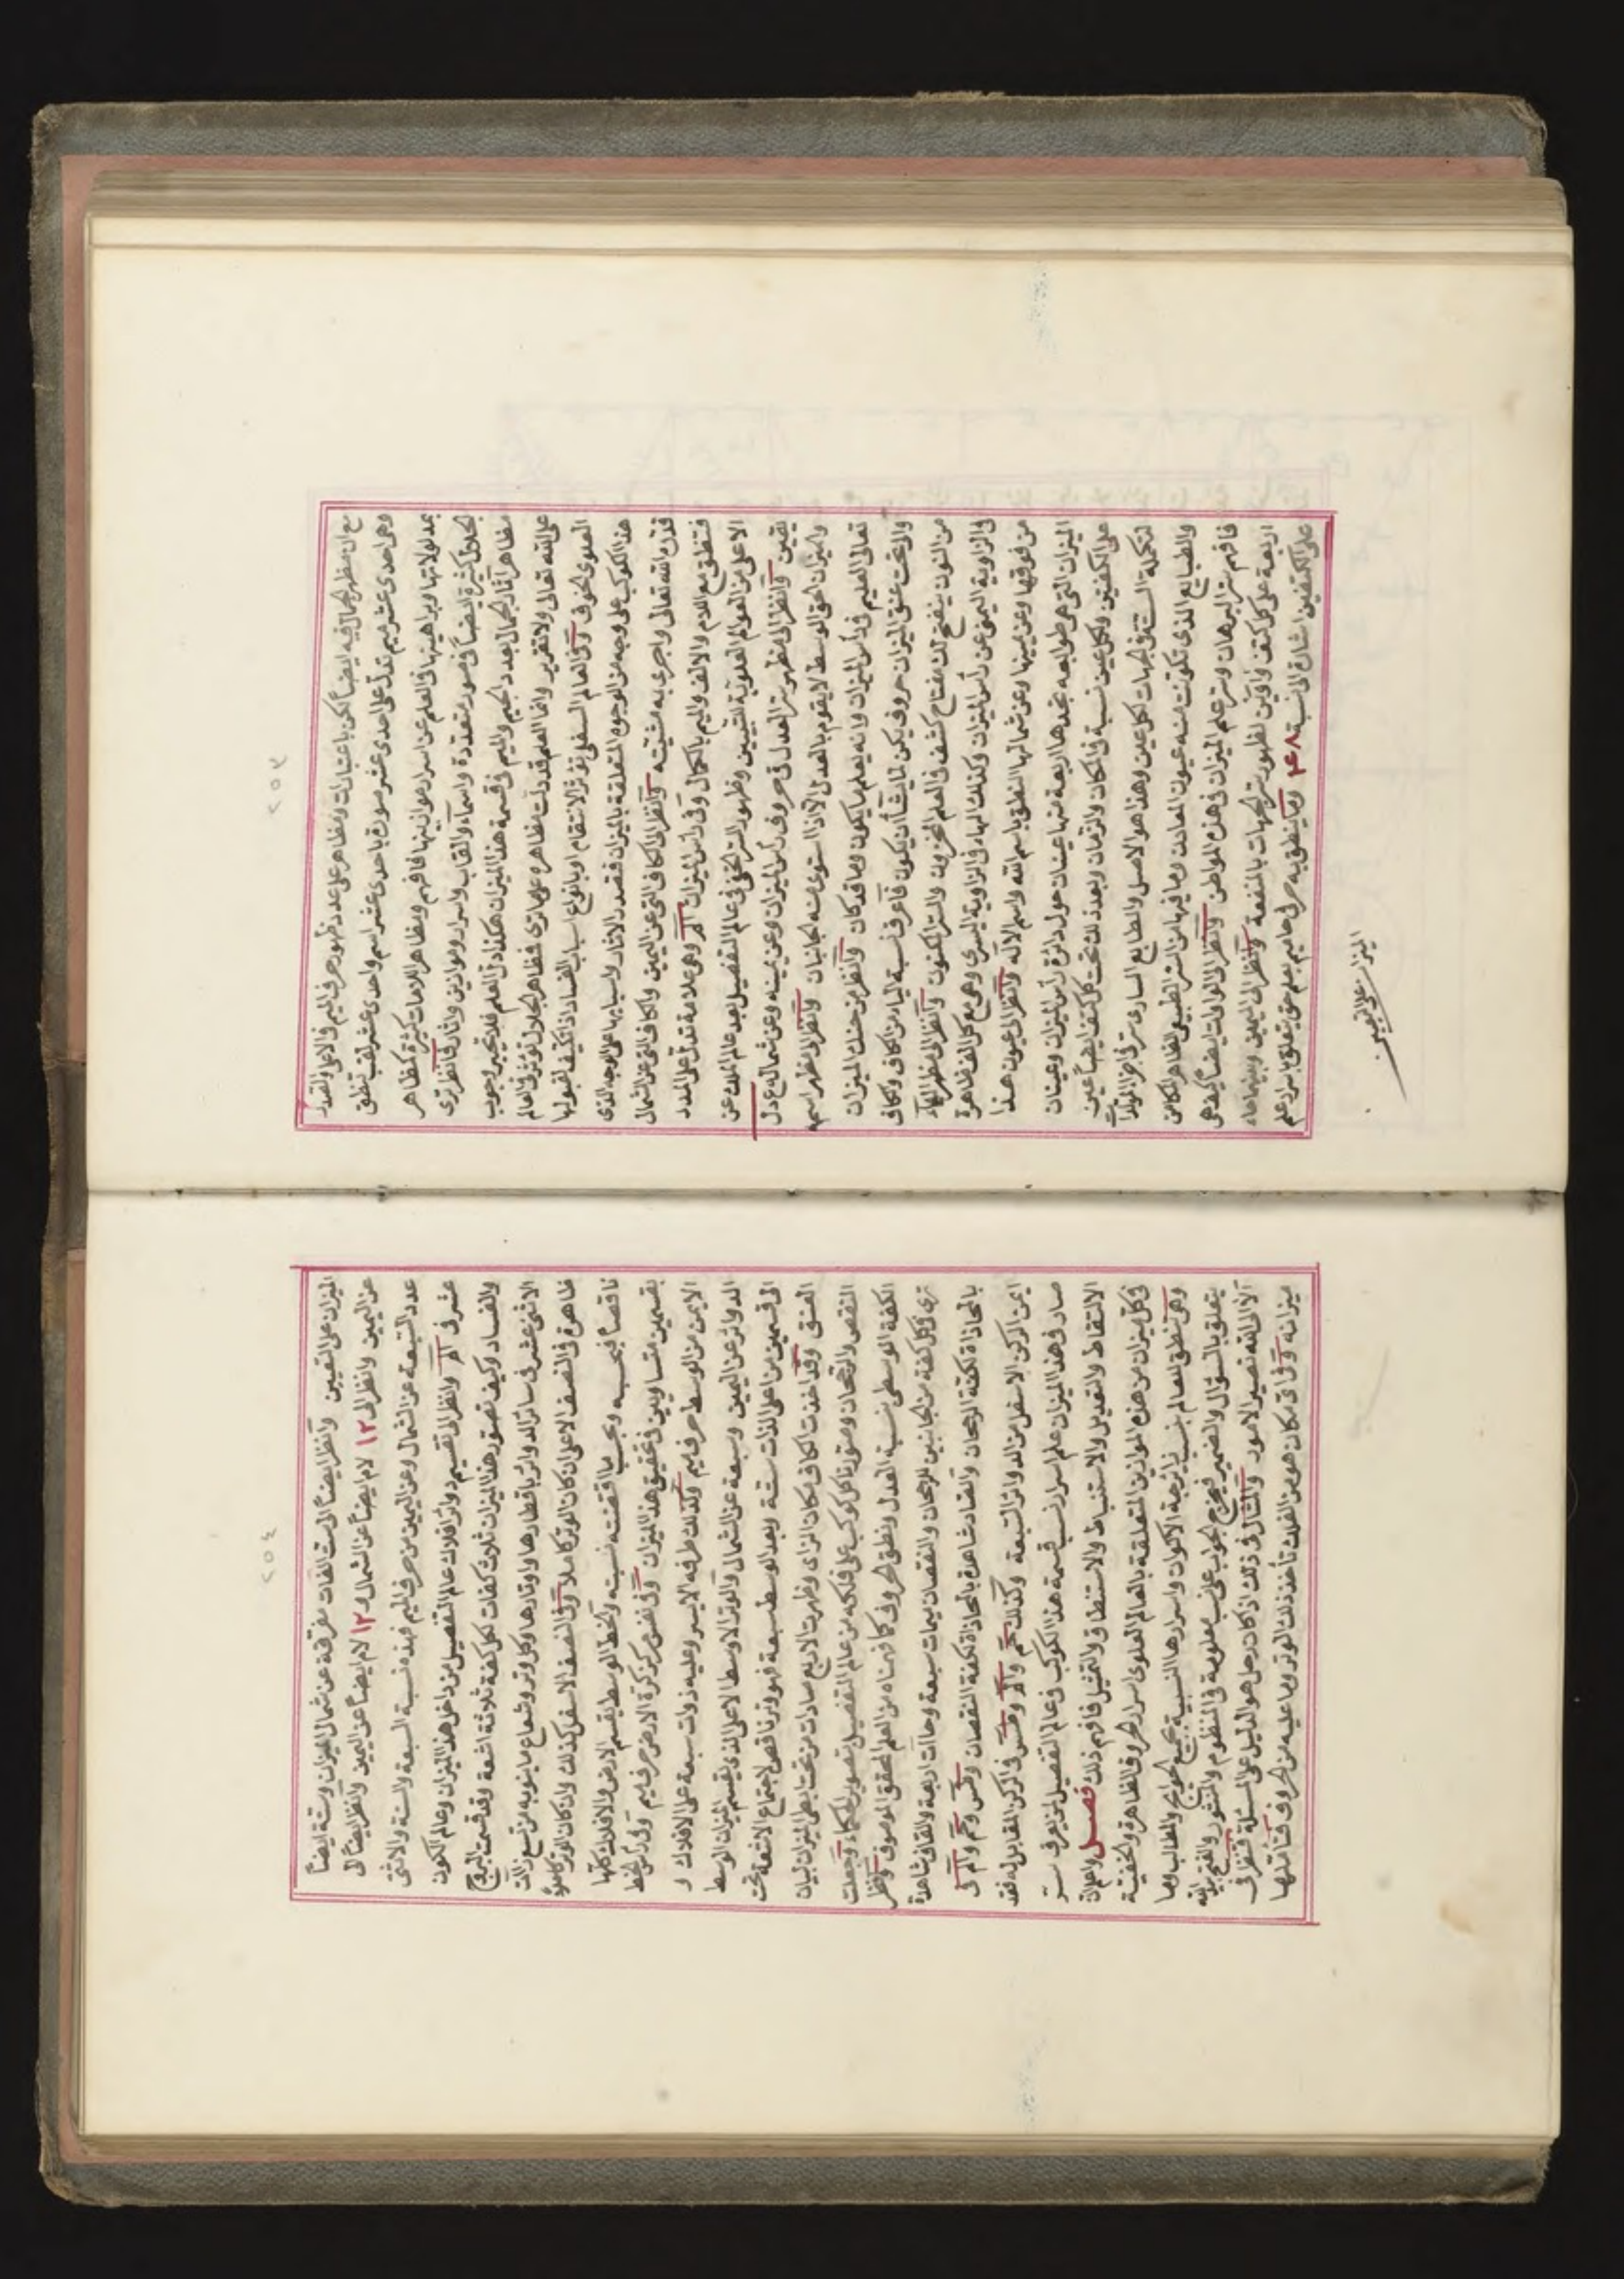 ٢٥٣
مع ان مظهر الجمال فيه ايضاً لكن باعتبارات ومظاهر على عدد ظهور حرف الميم فى الاعلى والعدد
وهى احدى عشر ميم تدل على احدى عشر صورة باحدى عشر اسم واحدى عشر لقب تنطق
بمدلولاتها وبراهينها فى العلم عن اسرار موازينها فافهم ومظاهر اللامات كثيرة كمظاهر
الجلال كثيرة ايضاً فى صور متعددة واسمآء والقاب واسرار وموازين واثار فانظر ترى
مظاهر آثار الجمال بعدد الجيم والميم فى قسمة هذا الميزان هكذا دل العلم فلا تجبير وجوب
على الله تعالى ولا تقرير وانما العلم قد دلت مظاهره على ما ترى فمظاهر الجلال تؤثر فى العالم
العلوى الخوف وفى العالم السفلى تؤثر الانتقام او بانواع اسباب الفساد اذا تكيف لقبولها
هذا الكوكب على وجه من الوجوه المتعلقة بالميزان فقصد الاثار واسبابها على الوجه الذى
قدره الله تعالى واجرى به مشيئته وانظر الى الكاف التى عن اليمين والكاف التى عن الشمال
فتنطق مع اللام والالف والميم بالكمال وفى رأس الميزان الم وهى علامة تدل على المدد
الاعلى من العوالم العلوية للتبيين وظهور السر الخفى فى عالم التفصيل بعد عالم الملك عن
يقين وانظر الى مظهر سر العدل فى حروف رأس الميزان وعن يمينه وعن شماله ع دل
والميزان الحق الوسط لا يقوم بالعدل الا اذا استوى منه الجانبان وانظر الى مظهر اسمه
تعالى العليم فى رأس الميزان وانه يعلم ما يكون وما قد كان وانظر من حنك الميزان
والى تحت عنق الميزان حروف يكن لما يشأ ان يكون فاعرف نسبة الياء من الكاف والكاف
من النون ينفتح لك مفتاح كشف فى العلم المخزون والسر المكنون وانظر الى مظهر الهاء
فى الزاوية اليمنى عن رأس الميزان وكذلك الهاء فى الزاوية اليسرى وهى مع كل الف ظاهرة
من فوقها وعن يمينها وعن شمالها النطق باسم الله واسم الاله وانظر الى عيون هذا
الميزان التى هى طوالعه تجدها اربعة منها عينان حول دائرة رأس الميزان وعينان
على الكفتين ولكل عين نسبة فى المكان والزمان وبعد ذلك تحت كل كفة ايضاً عين
لتكملة الست فى الجهات لكل عين وهذا هو الاصل والطابع السارى سر فى اجزا المولدات
والطبايع الذى تكونت منه عيون المعادن وما فيها من السر الطبيعى الظاهر الكامن
فافهم سر البرهان وسر علم الميزان فى هذه المواطن وانظر الى الواوات ايضاً كيف هى
اربعة على كل كتف واوين لظهور سر الجهات بالمنفعة وانظر الى اليمين وبينهما حاء
على الكتفين اشارة الى نسبة ٤٨ وما ينطق به حرفى حاميم بعلم حق يتعلق باسرار علم
الميزان على التعيين
٢٥٤
الميزان على التعيين وانظر ايضاً الى ست الفات مفرقة عن شمال الميزان وستة ايضاً
عن اليمين وانظر الى ١٢ لام ايضاً عن الشمال و١٢ لام ايضاً عن اليمين وانظر ايضاً الى
عدد السبعة عن الشمال وعن اليمين من حرف الميم فهذه نسبة السبعة والستة والاثنى
عشر فى الم وانظر الى تقسيم دوائر افلاك عالم التفصيل من داخل هذا الميزان وعالم الكون
والفساد وكيف تصور هذا الميزان ثلاث كفات لكل كفة ثلاثة اشعة وقد قسمت البروج
الاثنى عشر فى سائر الدوائر باقطارها واوتارها وكل وتر وشعاع ما ينوبه من تسع زالت
ظاهرة فى النصف الاعلى ان كان الوتر كاملا وفى النصف الاسفل كذلك وان كان الوتر كاملاً
ناقصاً فبحسبه وبحسب ما اقتضته نسبته والخط الوسط يقسم الارض والافلاك كلها
بقسمين متساويين فى تحقيق هذا الميزان وفى نفس مركز كرة الارض حرف ميم وفى رأس الخط
الايمن من الوسط حرف ميم وكذلك طرفه الايسر وعليه ذوات سبعة على الافلاك و
الدوائر عن اليمين وسبعة عن الشمال والوتر الاوسط الاعلى الذى يقسم الميزان الوسط
الى قسمين من اعلى الذات ستة وبعد الوسط سبعة فهو وتر ناقص لاجتماع الاشعة تحت
العنق وقد اخذت الكاف مكان الزاى وظهرت الاربع صادات من تحت ابطى الميزان لبيان
النقص والرجحان وصورنا كل كوكب على فلكه من عالم التفصيل تصوير الحكماء وجعلت
الكفة الوسطى بنسبة العدل ونطق الحروف كما فهمناه من العلم المحقق الموصوف وانظر
ترى فى كل كفة من الجانبين للرجحان والنقصان ميمات سبعة وحاآت اربعة والقاف شاهدة
بالمحاذاة لكفة الرجحان والصاد شاهدة بالمحاذاة لكفة النقصان وطس وحم والم فى
ايمن الركن الاسفل من الدوائر التسعة وكذلك حم والم وطس فى الركن المقابل له فقد
صار فى هذا الميزان علم اسرار نسب قسمة هذا الكوكب فى عالم التفصيل لمن يعرف سر
الالتقاط والتعديل والاستنباط والاستنطاق والتمثيل فافهم ذلك فصل واعلم ان
فى كل ميزان من هذه الموازين المتعلقة بالعالم العلوى اسرار الحروف الظاهرة والخفية
وهى تنطق للعالم بنسب نايرجة الاكوان واسرارها النسبية بجميع الحوايج والمطالب وما
يتعلق بالسؤال والضمير فيخرج الجواب على نسب معلومة فى المنظوم والمنثور والفتح بيد الله
الا الى الله تصير الامور والمثال فى ذلك اذا كان زحل هو الدليل على المسئلة فتنظر فى
ميزانه وفى اى مكان هو من الفلك تأخذ ذلك الوتر وما عليه من الحروف فتأملها